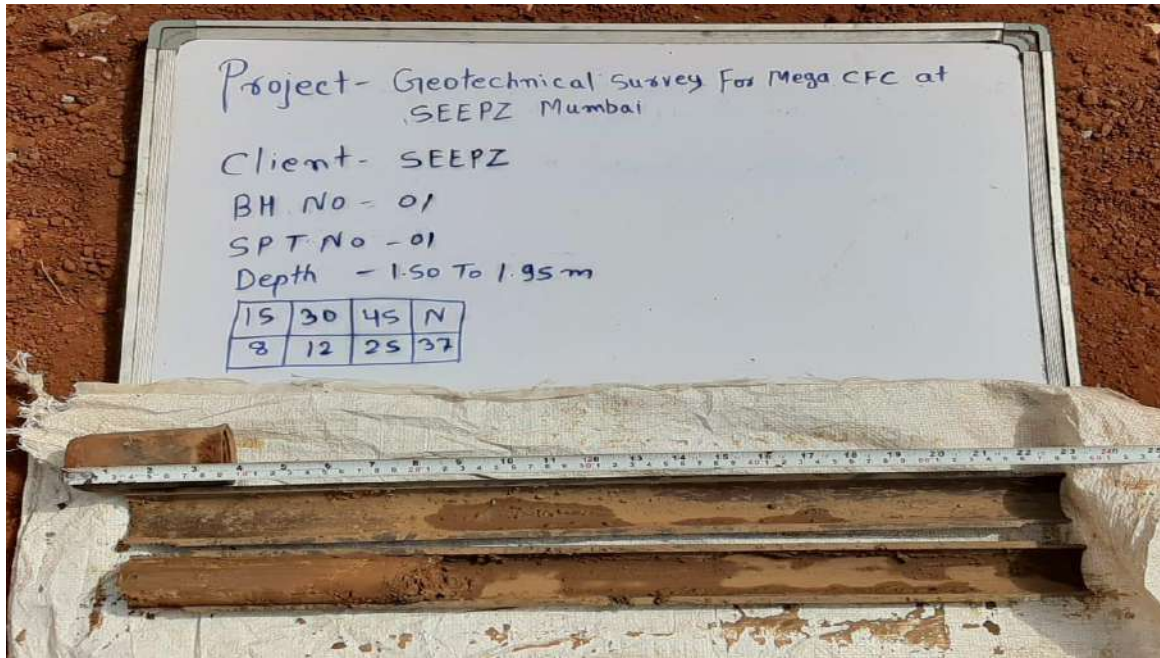 Project - Geotechnical Survey For Mega CFC at
SEEPZ Mumbai
Client - SEEPZ
BH No - 01
SPT No - 01
Depth - 1.50 To 1.95 m
15 30 45 N
8 12 25 37
1 2 3 4 5 6 7 8 9 10 11 12 13 14 15 16 17 18 19 20 21 22 23 24 25